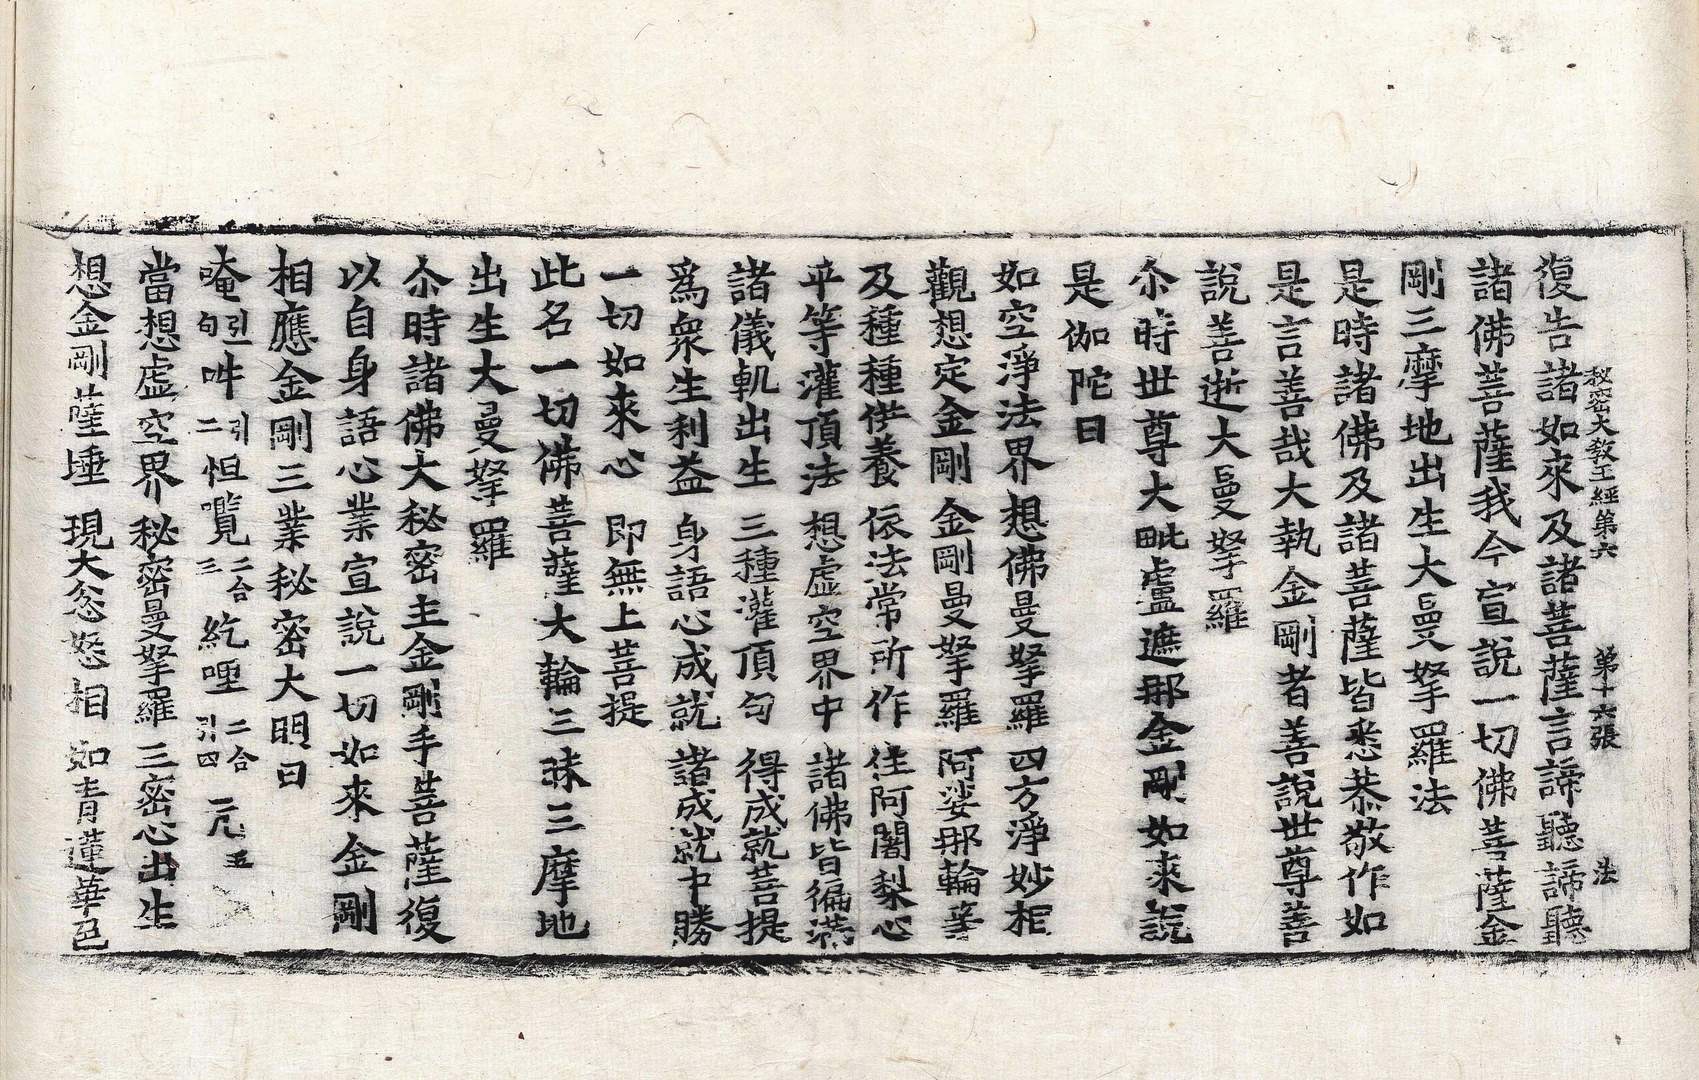 秘密大教王經第六 第十六張 法
復告諸如來及諸菩薩言諦聽諦聽
諸佛菩薩我今宣說一切佛菩薩金
剛三摩地出生大曼拏羅法
是時諸佛及諸菩薩皆悉恭敬作如
是言善哉大執金剛者善說世尊善
說善逝大曼拏羅
尒時世尊大毗盧遮那金剛如來說
是伽陀曰
如空淨法界 想佛曼拏羅 四方淨妙相
觀想定金剛 金剛曼拏羅 阿娑那輪等
及種種供養 依法常所作 住阿闍梨心
平等灌頂法 想虛空界中 諸佛皆徧滿
諸儀軌出生 三種灌頂句 得成就菩提
爲衆生利益 身語心成就 諸成就中勝
一切如來心 即無上菩提
此名一切佛菩薩大輪三昧三摩地
出生大曼拏羅
尒時諸佛大秘密主金剛手菩薩復
以自身語心業宣說一切如來金剛
相應金剛三業秘密大明曰
唵引一句吽引二怛囕二合三紇哩二合引四亢五
當想虛空界 秘密曼拏羅 三密心出生
想金剛薩埵 現大忿怒相 如青蓮華色